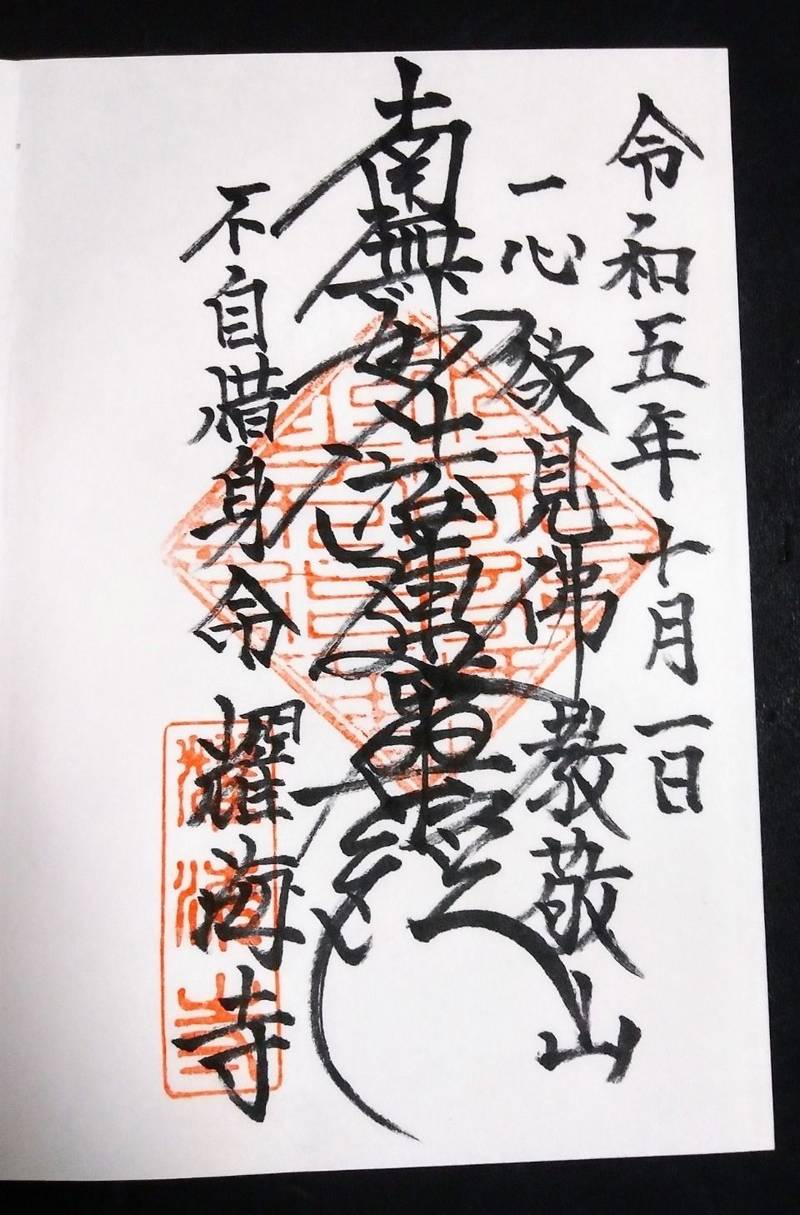 令和五年十月一日
一心欲見佛 教敬山
南無妙法蓮華経
不自惜身命 耀海寺
耀海寺